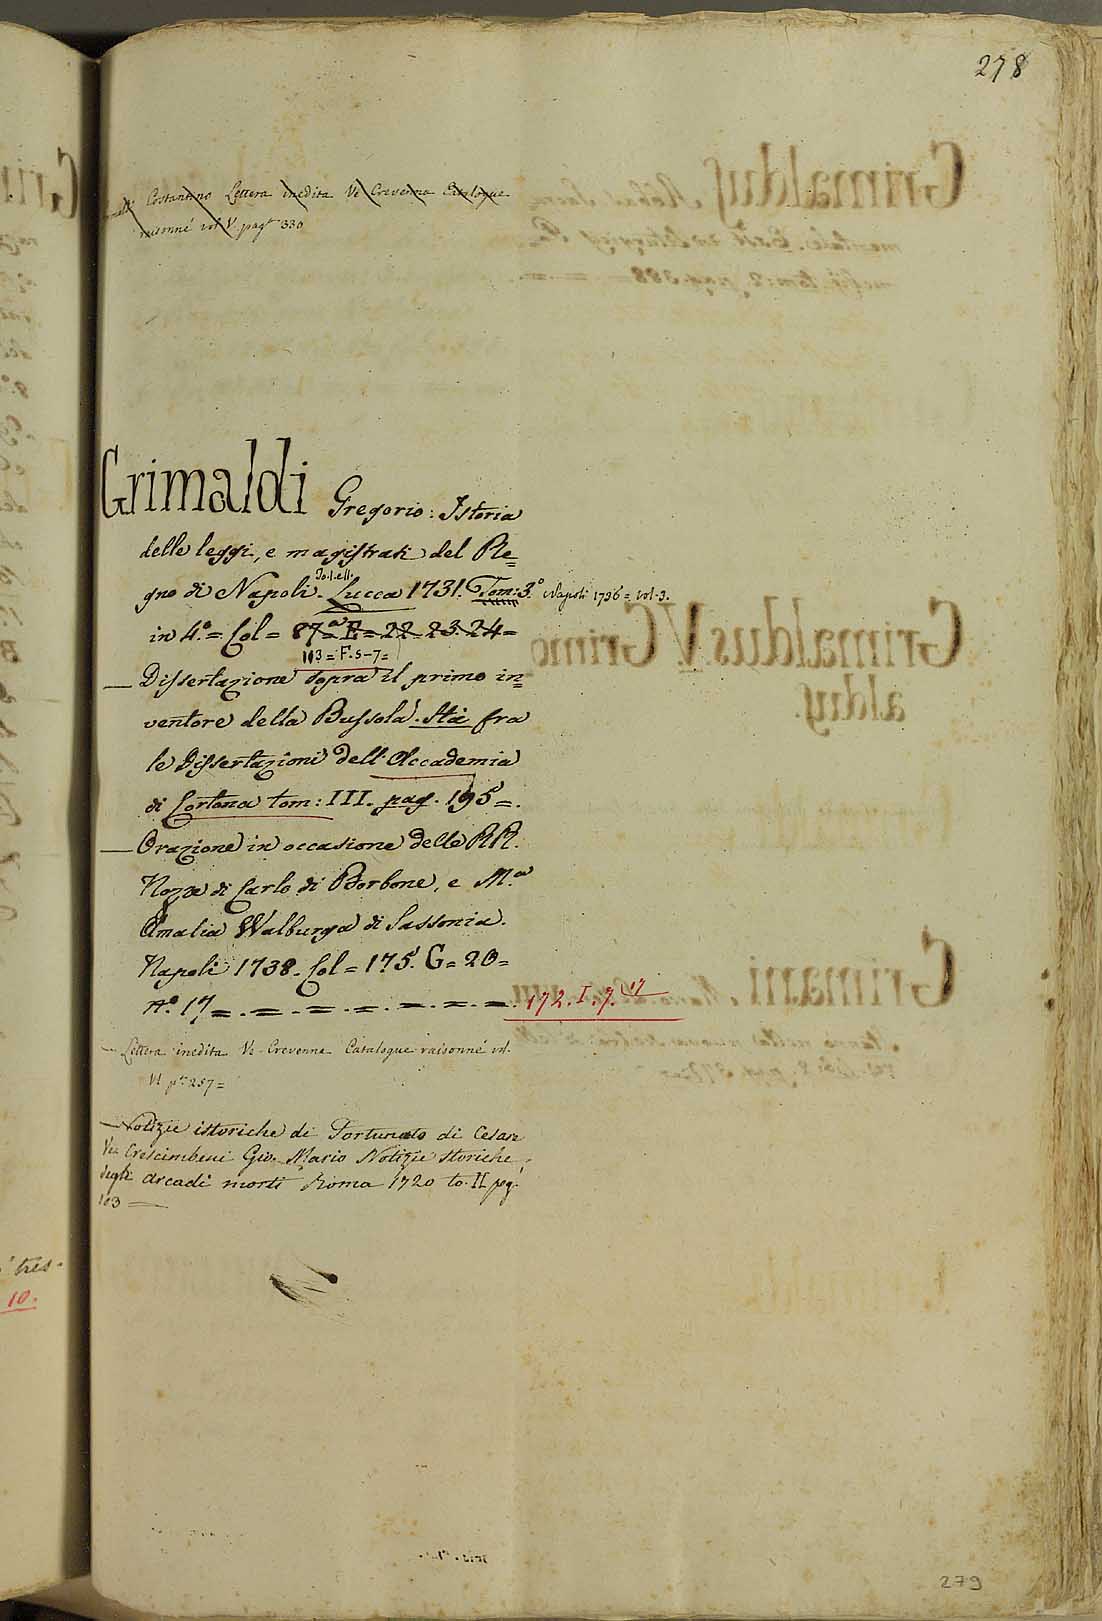 278
Costantino Lettera inedita Ve Crevenna Catalogue
raisonné vol V. pagª 330
Grimaldi Gregorio: Istoria
delle leggi, e magistrati del Re=
gno di Napoli. Lucca 1731. Tom: 3.° Napoli 1736 = vol. 3.
in 4.° = Col = 87 = E = 22 23. 24 =
113 = F. 5-7 =
— Dissertazione sopra il primo in=
ventore della Bussola. Stà fra
le Dissertazioni dell'Accademia
di Cortona tom: III. pag. 195 =.
— Orazione in occasione delle RR.
Nozze di Carlo di Borbone, e M.ª
Amalia Walburga di Sassonia.
Napoli 1738. Col = 175. G = 20 =
N.° 17 = . = . = . = . = . = . = . 172. I. 7. 17
— Lettera inedita Ve Crevenna Catalogue raisonné vol.
VI pª 257 =
— Notizie istoriche di Fortunato di Cesare
Ve Crescimbeni Gio. Mario Notizie storiche
degli Arcadi morti Roma 1720 to. II pag.
103 —
tres.
10.
279